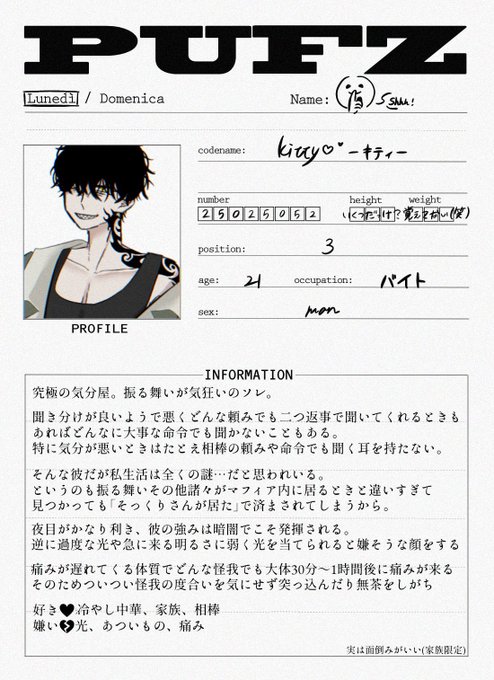 PUFZ
Lunedì / Domenica
Name: Sshhh!
codename: Kitty♡ーキティー
number height weight
25025052 いくつだっけ？覚えてない(笑)
position: 3
age: 21 occupation: バイト
sex: man
PROFILE
INFORMATION
究極の気分屋。振る舞いが気狂いのソレ。
聞き分けが良いようで悪くどんな頼みでも二つ返事で聞いてくれるときも
あればどんなに大事な命令でも聞かないこともある。
特に気分が悪いときはたとえ相棒の頼みや命令でも聞く耳を持たない。
そんな彼だが私生活は全くの謎…だと思われいる。
というのも振る舞いその他諸々がマフィア内に居るときと違いすぎて
見つかっても「そっくりさんが居た」で済まされてしまうから。
夜目がかなり利き、彼の強みは暗闇でこそ発揮される。
逆に過度な光や急に来る明るさに弱く光を当てられると嫌そうな顔をする
痛みが遅れてくる体質でどんな怪我でも大体30分〜1時間後に痛みが来る
そのためついつい怪我の度合いを気にせず突っ込んだり無茶をしがち
好き♥冷やし中華、家族、相棒
嫌い💔光、あついもの、痛み
実は面倒みがいい(家族限定)